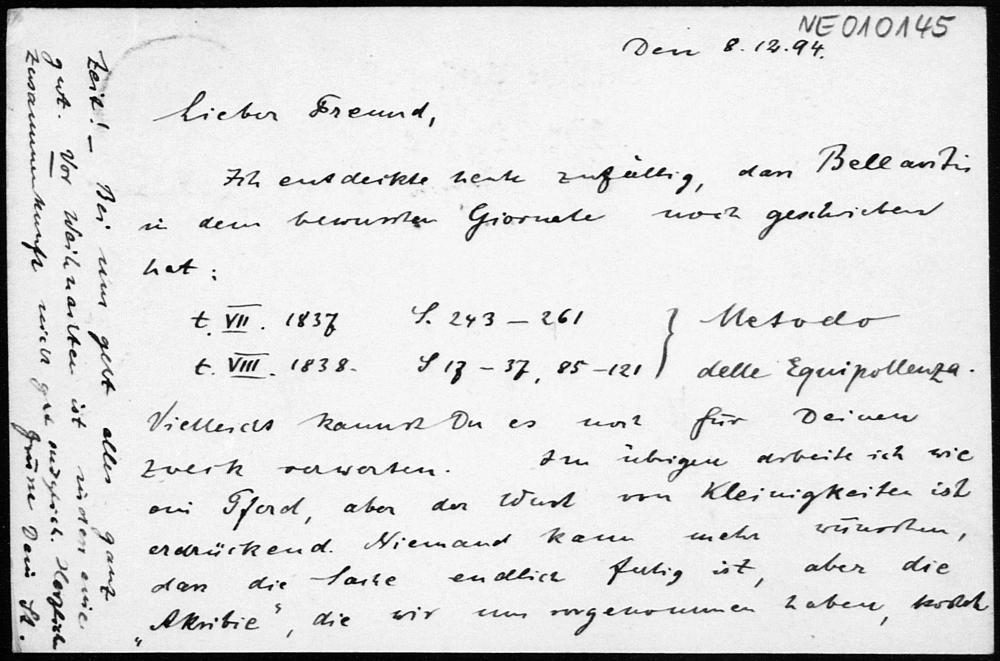 NE010145
Den 8.12.94.
Lieber Freund,
Ich entdeckte heute zufällig, dass Bellavitis
in dem bewussten Giornale noch geschrieben
hat:
t. VII. 1837 S. 243 – 261 } Metodo
t. VIII. 1838. S 17 – 37, 85 – 121 } delle Equipollenza.
Vielleicht kannst Du es noch für Deinen
Zweck verwerten. Im übrigen arbeite ich wie
ein Pferd, aber der Wust von Kleinigkeiten ist
erdrückend. Niemand kann mehr wünschen,
dass die Sache endlich fertig ist, aber die
„Akribie“, die wir uns vorgenommen haben, kostet
Zeit! – Bei uns geht alles ganz
gut. Vor Weihnachten ist indes eine
Zusammenkunft nicht gut möglich. Herzlich
grüsst Dein St.